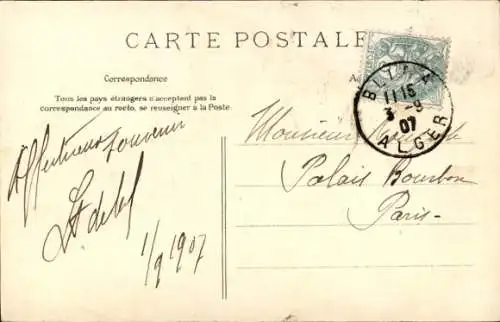 CARTE POSTALE
Correspondance
Tous les pays étrangers n'acceptent pas la
correspondance au recto, se renseigner à la Poste.
Affectueux souvenir
1/9 1907
BLIDA
11 15
3 -9
07
ALGER
Monsieur
Palais Bourbon
Paris-